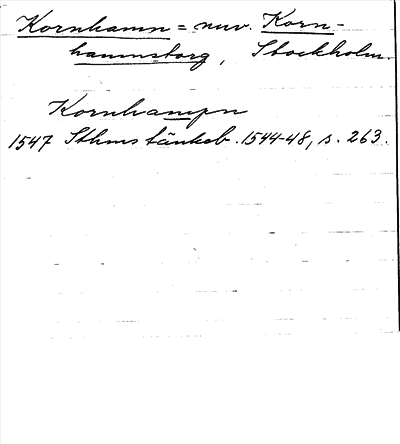 Kornhamn = nuv. Korn-
hamnstorg, Stockholm.
Kornhampn
1547 Sthms tänkeb. 1544-48, s. 263.